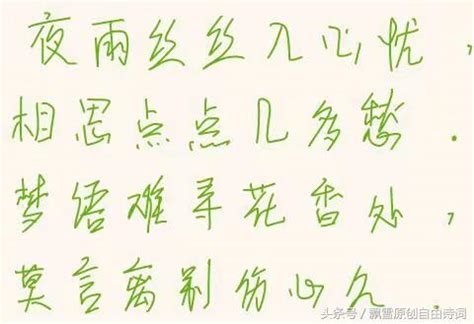 夜雨丝丝入心忧，
相思点点几多愁．
梦语难寻花香处，
莫言离别伤心久．
头条号／飘雪原创自由诗词